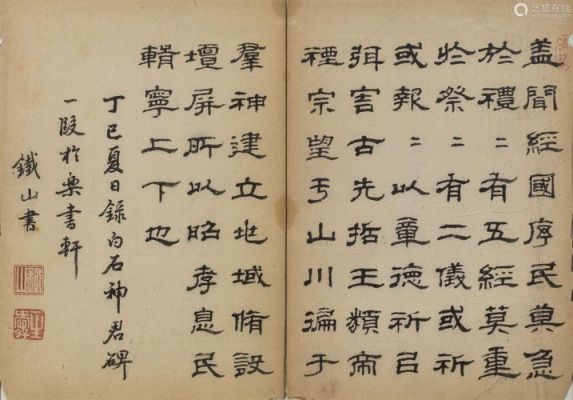 盖聞經國序民莫急
於禮〻有五經莫重
於祭〻有二儀或祈
或報〻以章德祈㠯
弭害古先哲王類帝
禋宗望于山川徧于
羣神建立地域脩設
壇屏所以昭孝息民
輯寧上下也
丁巳夏日錄白石神君碑
一段於樂書軒
鐵山書
艺狐在线